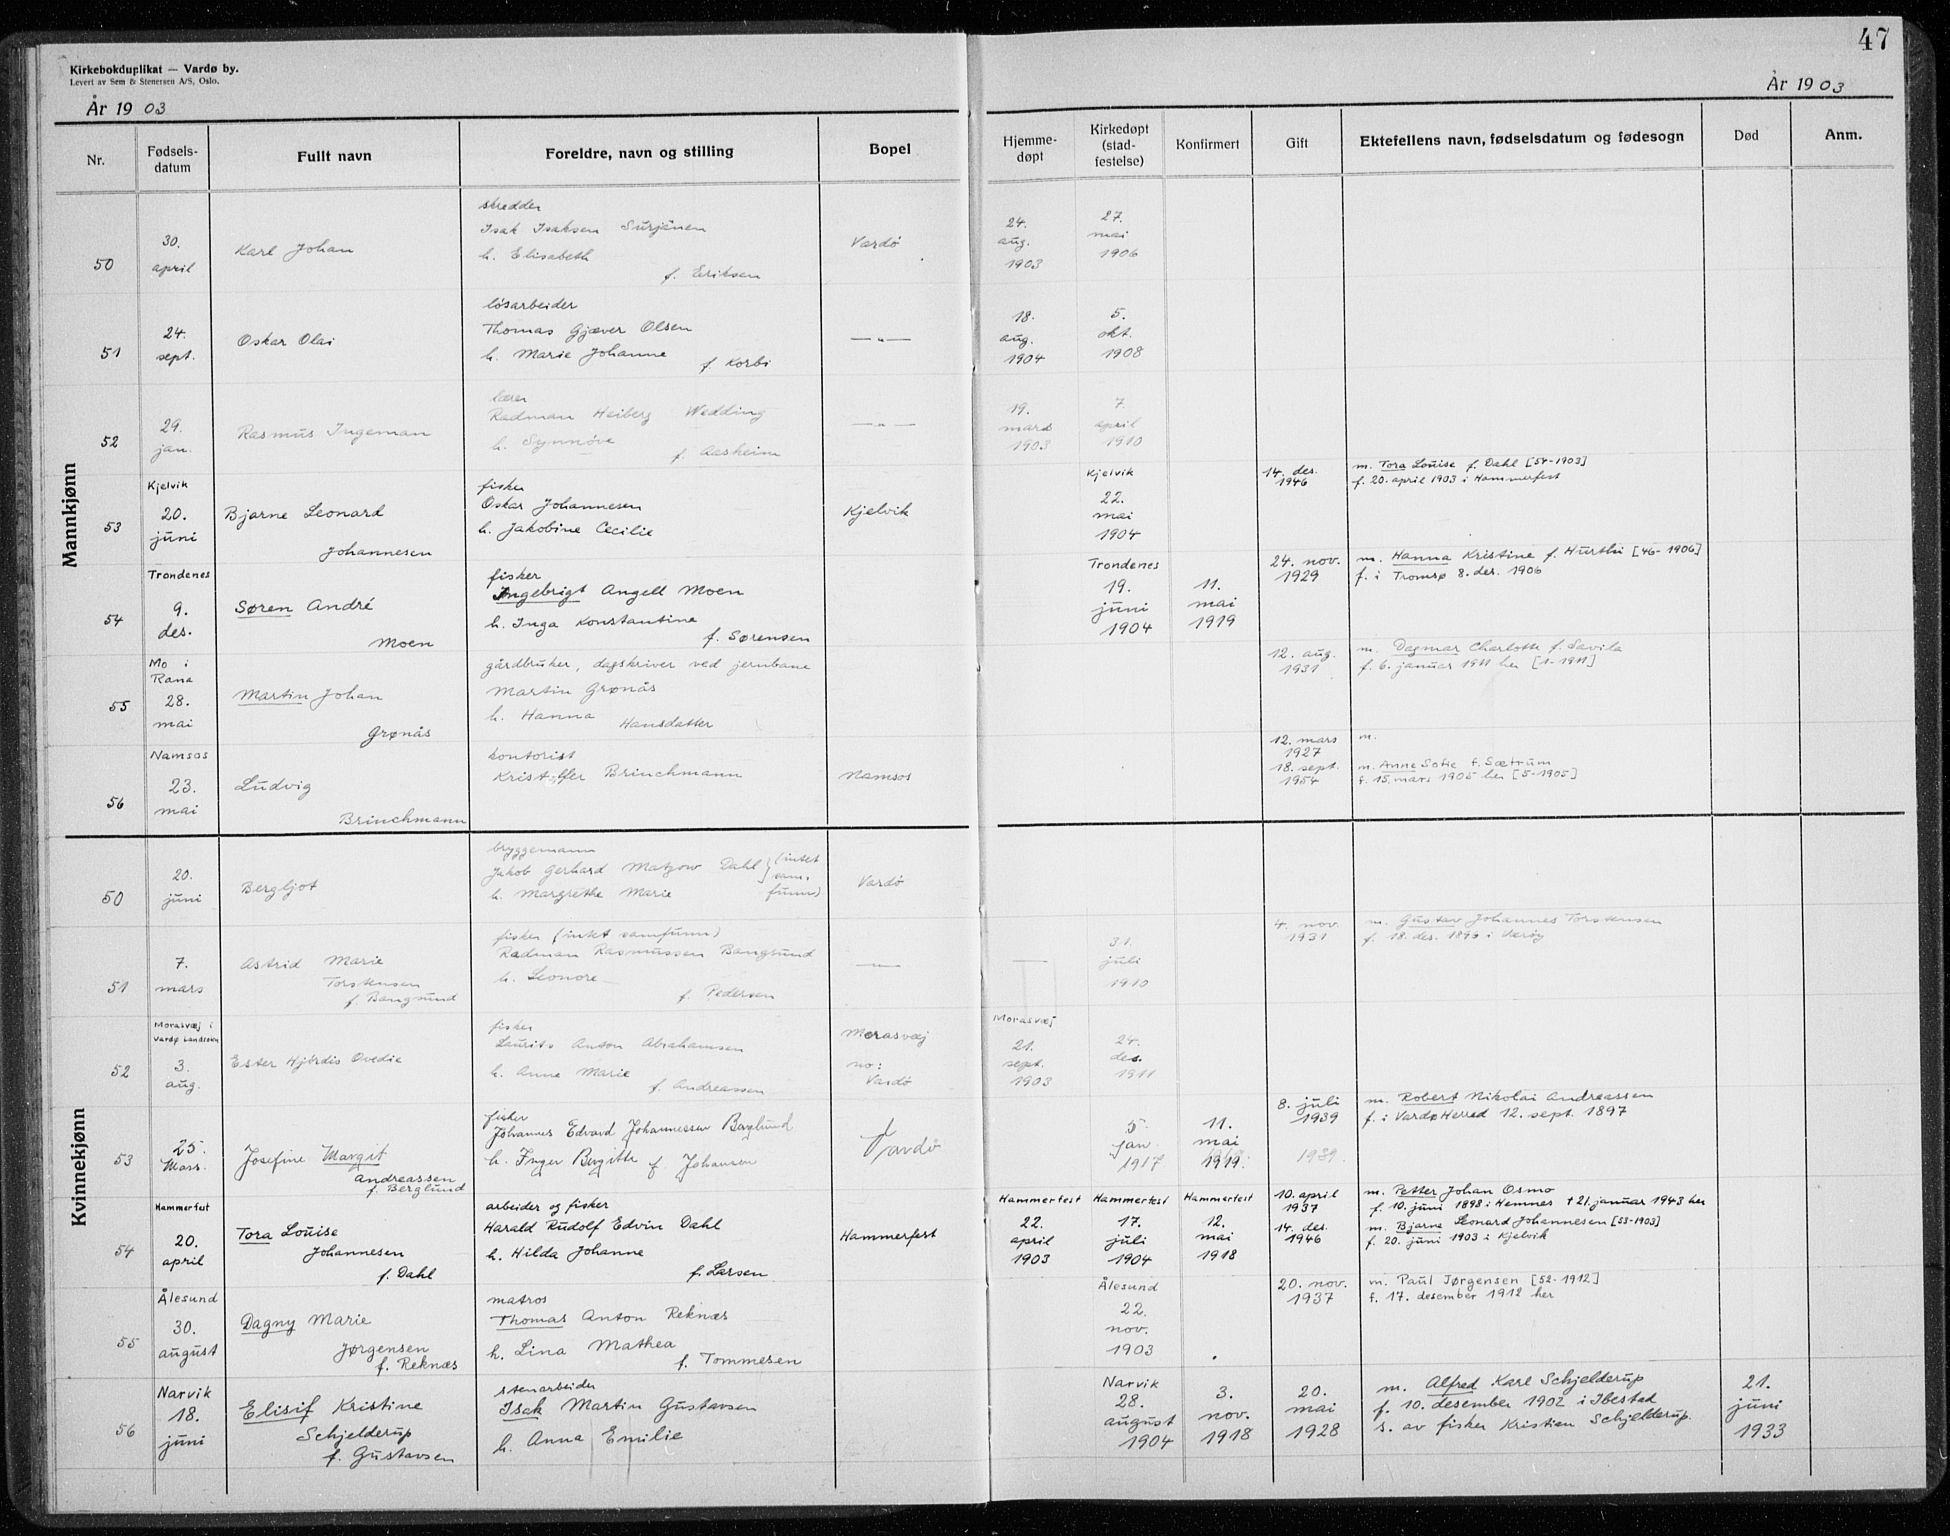 47
Kirkebokduplikat — Vardø by.
Levert av Sem & Stenersen A/S, Oslo.
År 1903
År 1903
Nr.
Fødsels-
datum
Fullt navn
Foreldre, navn og stilling
Bopel
Hjemme-
døpt
Kirkedøpt
(stad-
festelse)
Konfirmert
Gift
Ektefellens navn, fødselsdatum og fødesogn
Død
Anm.
Mannkjønn
50
30.
april
Karl Johan
skredder
Isak Isaksen Surjänen
h. Elisabeth
f. Eriksen
Vardø
24.
aug.
1903
27.
mai
1906
51
24.
sept.
Oskar Olai
løsarbeider
Thomas Gjæver Olsen
h. Marie Johanne
f. Korbi
—"—
18.
aug.
1904
5.
okt.
1908
52
29.
jan.
Rasmus Ingeman
lærer
Radman Heiberg Wedding
h. Synnøve
f. Aasheim
—"—
19.
mars
1903
7.
april
1910
53
Kjelvik
20.
juni
Bjarne Leonard
Johannesen
fisker
Oskar Johannesen
h. Jakobine Cecilie
Kjelvik
Kjelvik
22.
mai
1904
14. des.
1946
m. Tora Louise f. Dahl [54-1903]
f. 20. april 1903 i Hammerfest
54
Trondenes
9.
des.
Søren André
Moen
fisker
Ingebrigt Angell Moen
h. Inga Konstantine
f. Sørensen
Trondenes
19.
juni
1904
11.
mai
1919
24. nov.
1929
m. Hanna Kristine f. Hurthi [46-1906]
f. i Tromsø 8. des. 1906
55
Mo i
Rana
28.
mai
Martin Johan
Grønås
gårdbruker, dagskriver ved jernbane
Martin Grønås
h. Hanna Hansdatter
12. aug.
1931
m. Dagmar Charlotte f. Savila
f. 6. januar 1911 her [1-1911]
56
Namsos
23.
mai
Ludvig
Brinchmann
kontorist
Kristoffer Brinchmann
Namsos
12. mars
1927
m.
18. sept.
1954
m. Anne Sofie f. Sætrum
f. 15. mars 1905 her [5-1905]
Kvinnekjønn
50
20.
juni
Bergljot
bryggemann
Jakob Gerhard Matzow Dahl } (intet
h. Margrethe Marie sam-
funn)
Vardø
51
7.
mars
Astrid Marie
Torstensen
f. Bangsund
fisker (intet samfunn)
Radman Rasmussen Bangsund
h. Leonore
f. Pedersen
—
—
31.
juli
1910
4. nov.
1931
m. Gustav Johannes Torstensen
f. 18. des. 1896 i Værøy
52
Morasvæj i
Vardø Landsokn
3.
aug.
Ester Hjördis Ovedie
fisker
Laurits Anton Abrahamsen
h. Anne Marie
f. Andreassen
Morasvæj
no:
Vardø
Morasvæj
21.
sept.
1903
24.
des.
1911
53
25.
Mars.
Josefine Margit
Andreassen
f. Berglund
fisker
Johannes Edvard Johannessen Berglund
h. Inger Bergitte f. Johansen
Vardø
5.
Jan.
1917
11.
mai
1919.
8. juli
1939
1939
m. Robert Nikolai Andreassen
f. i Vardø Herred 12. sept. 1897
54
Hammerfest
20.
april
Tora Louise
Johannesen
f. Dahl
arbeider og fisker
Harald Rudolf Edvin Dahl
h. Hilda Johanne
f. Larsen
Hammerfest
Hammerfest
22.
april
1903
Hammerfest
17.
juli
1904
Hammerfest
12.
mai
1918
10. april
1937
m. Petter Johan Osmo
f. 10. juni 1898 i Hemnes † 21. januar 1943 her
14. des.
1946
m. Bjarne Leonard Johannesen [53-1903]
f. 20. juni 1903 i Kjelvik
55
Ålesund
30.
august
Dagny Marie
Jørgensen
f. Reknæs
matros
Thomas Anton Reknæs
h. Lina Mathea
f. Tommesen
Ålesund
22.
nov.
1903
20. nov.
1937
m. Paul Jørgensen [52-1912]
f. 17. desember 1912 her
56
Narvik
18.
juni
Elisif Kristine
Schjelderup
f. Gustavsen
stenarbeider
Isak Martin Gustavsen
h. Anna Emilie
Narvik
28.
august
1904
3.
nov.
1918
20.
mai
1928
m. Alfred Karl Schjelderup
f. 10. desember 1902 i Ibestad
s. av fisker Kristian Schjelderup.
21.
juni
1933